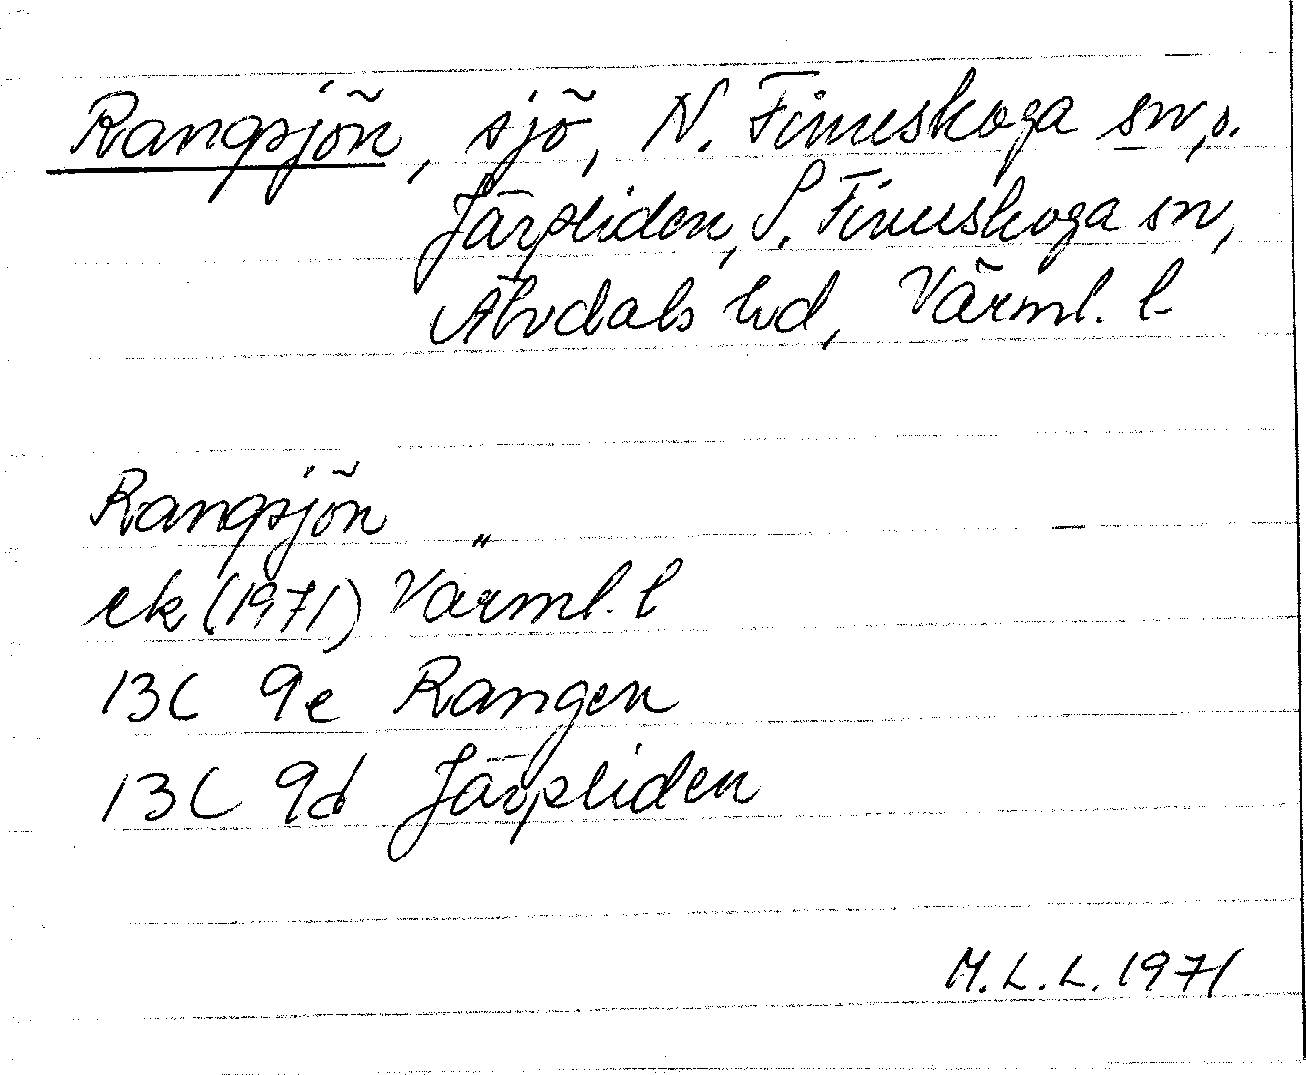 Rangsjön, sjö, N. Finnskoga sn, o.
Järpliden, S. Finnskoga sn,
Älvdals hd, Värml. l
Rangsjön "
ek (1971) Värml. l
13C 9e Rangen
13C 9d Järpliden
M.L.L. 1971